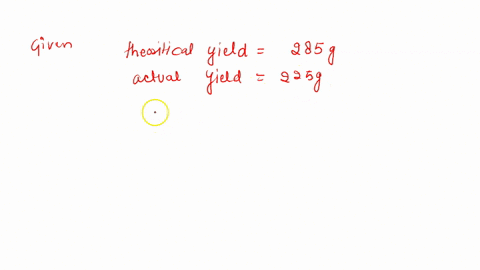 Given theoritical yield = 285g
actual yield = 225g